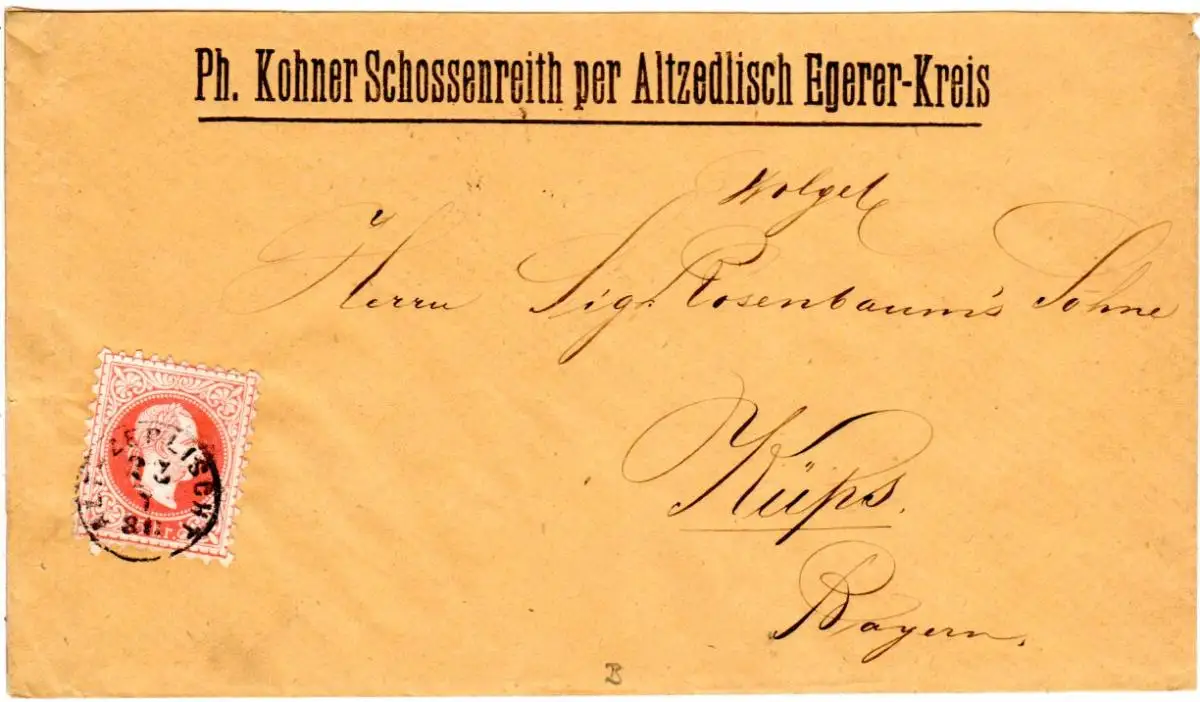 Ph. Kohner Schossenreith per Altzedlisch Egerer-Kreis
Wolgeb
Herrn Sig. Rosenbaum's Söhne
Küps.
Bayern.
B